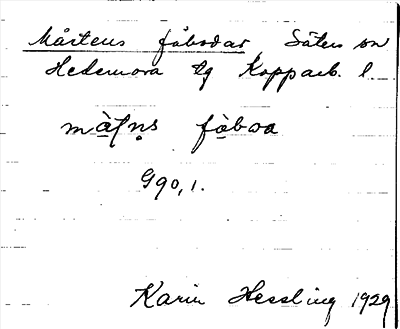 Mårtens fäbodar, Säters sn
Hedemora tg Kopparb. l
fàboa
G90,1.
Karin Hessling 1929